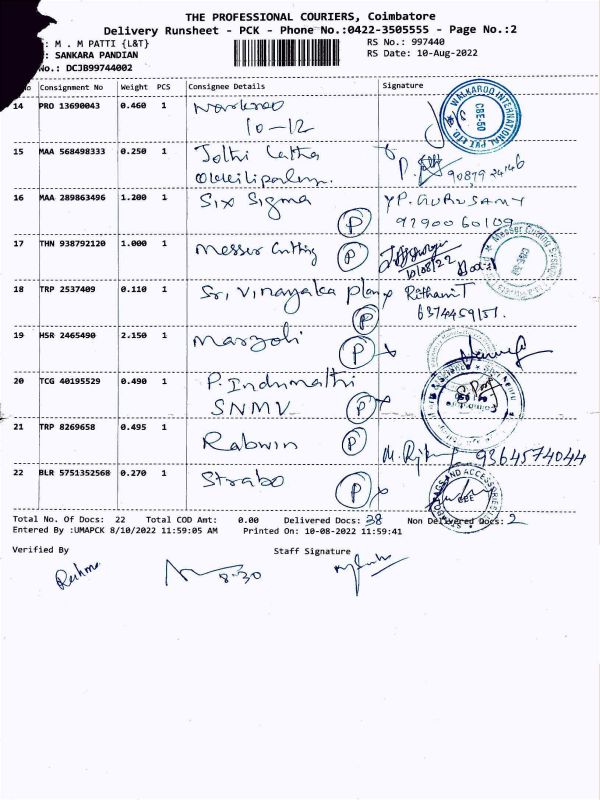 THE PROFESSIONAL COURIERS, Coimbatore
Delivery Runsheet - PCK - Phone No.:0422-3505555 - Page No.:2
: M . M PATTI {L&T}
RS No.: 997440
: SANKARA PANDIAN
RS Date: 10-Aug-2022
No.: DCJB99744002
No Consignment No Weight PCS Consignee Details Signature
14 PRO 13690043 0.460 1 Walkaroo
10-12
WALKAROO INTERNATIONAL PVT LTD.
CBE-50
15 MAA 568498333 0.250 1 Jothi Latha
90879 24146
16 MAA 289863496 1.200 1 Six Sigma Y.P. GURUSAMY
P 9790060109
17 THN 938792120 1.000 1 Messer Cutting P
10/08/22
Messer Cutting Systems
18 TRP 2537409 0.110 1 Sri Vinayaka Rithani T
P 6374459151.
19 HSR 2465490 2.150 1 Marzoli P
20 TCG 40195529 0.490 1 P. Indumathi
SNMV P
21 TRP 8269658 0.495 1 Rabwin P
9364574044
22 BLR 5751352568 0.270 1 Strabo
P
BAGS AND ACCESSORIES
Total No. Of Docs: 22 Total COD Amt: 0.00 Delivered Docs: 38 Non Delivered Docs: 2
Entered By :UMAPCK 8/10/2022 11:59:05 AM Printed On: 10-08-2022 11:59:41
Verified By Staff Signature
8-30